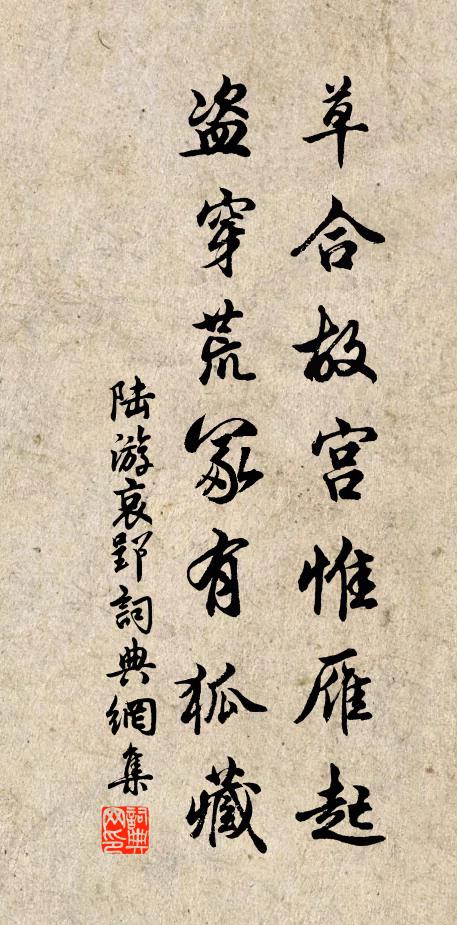 草合故宫惟雁起
盗穿荒冢有狐藏
陆游哀郢詞典網集
詞典網印